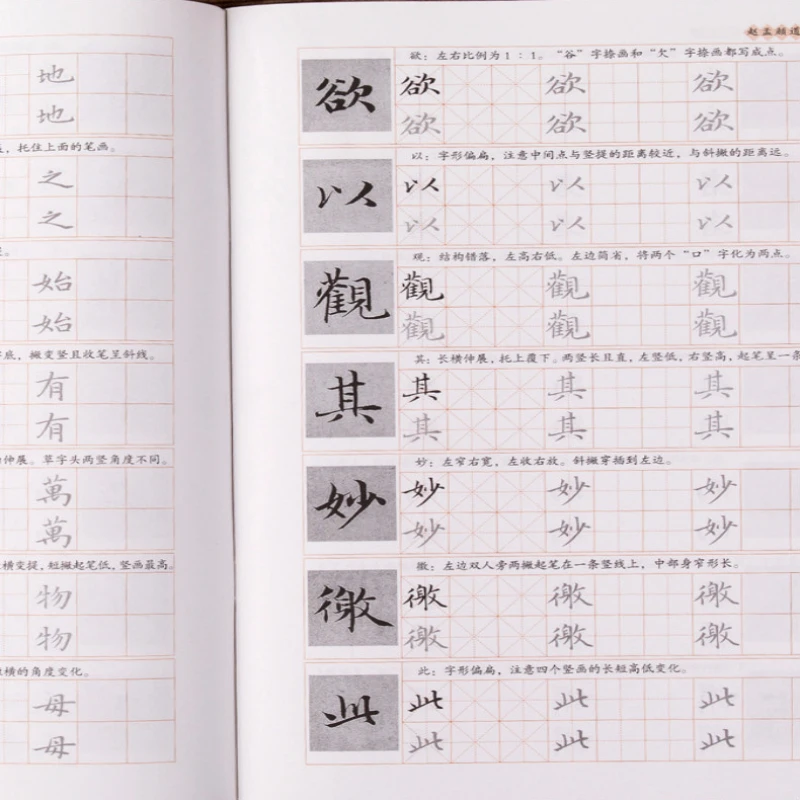 地
地
，托住上面的笔画。
之
之
始
始
底，撇变竖且收笔呈斜线。
有
有
伸展。草字头两竖角度不同。
萬
萬
横变提，短撇起笔低，竖画最高。
物
物
横的角度变化。
母
母
赵孟頫道
欲：左右比例为1：1。“谷”字捺画和“欠”字捺画都写成点。
欲 欲 欲 欲
欲 欲 欲
以：字形偏扁，注意中间点与竖提的距离较近，与斜撇的距离远。
以 以 以 以
以 以 以
观：结构错落，左高右低。左边简省，将两个“口”字化为两点。
觀 觀 觀 觀
觀 觀 觀
其：长横伸展，托上覆下。两竖长且直，左竖低，右竖高，起笔呈一条
其 其 其 其
其 其 其
妙：左窄右宽，左收右放。斜撇穿插到左边。
妙 妙 妙 妙
妙 妙 妙
徼：左边双人旁两撇起笔在一条竖线上，中部身窄形长。
徼 徼 徼 徼
徼 徼 徼
此：字形偏扁，注意四个竖画的长短高低变化。
此 此 此 此
此 此 此